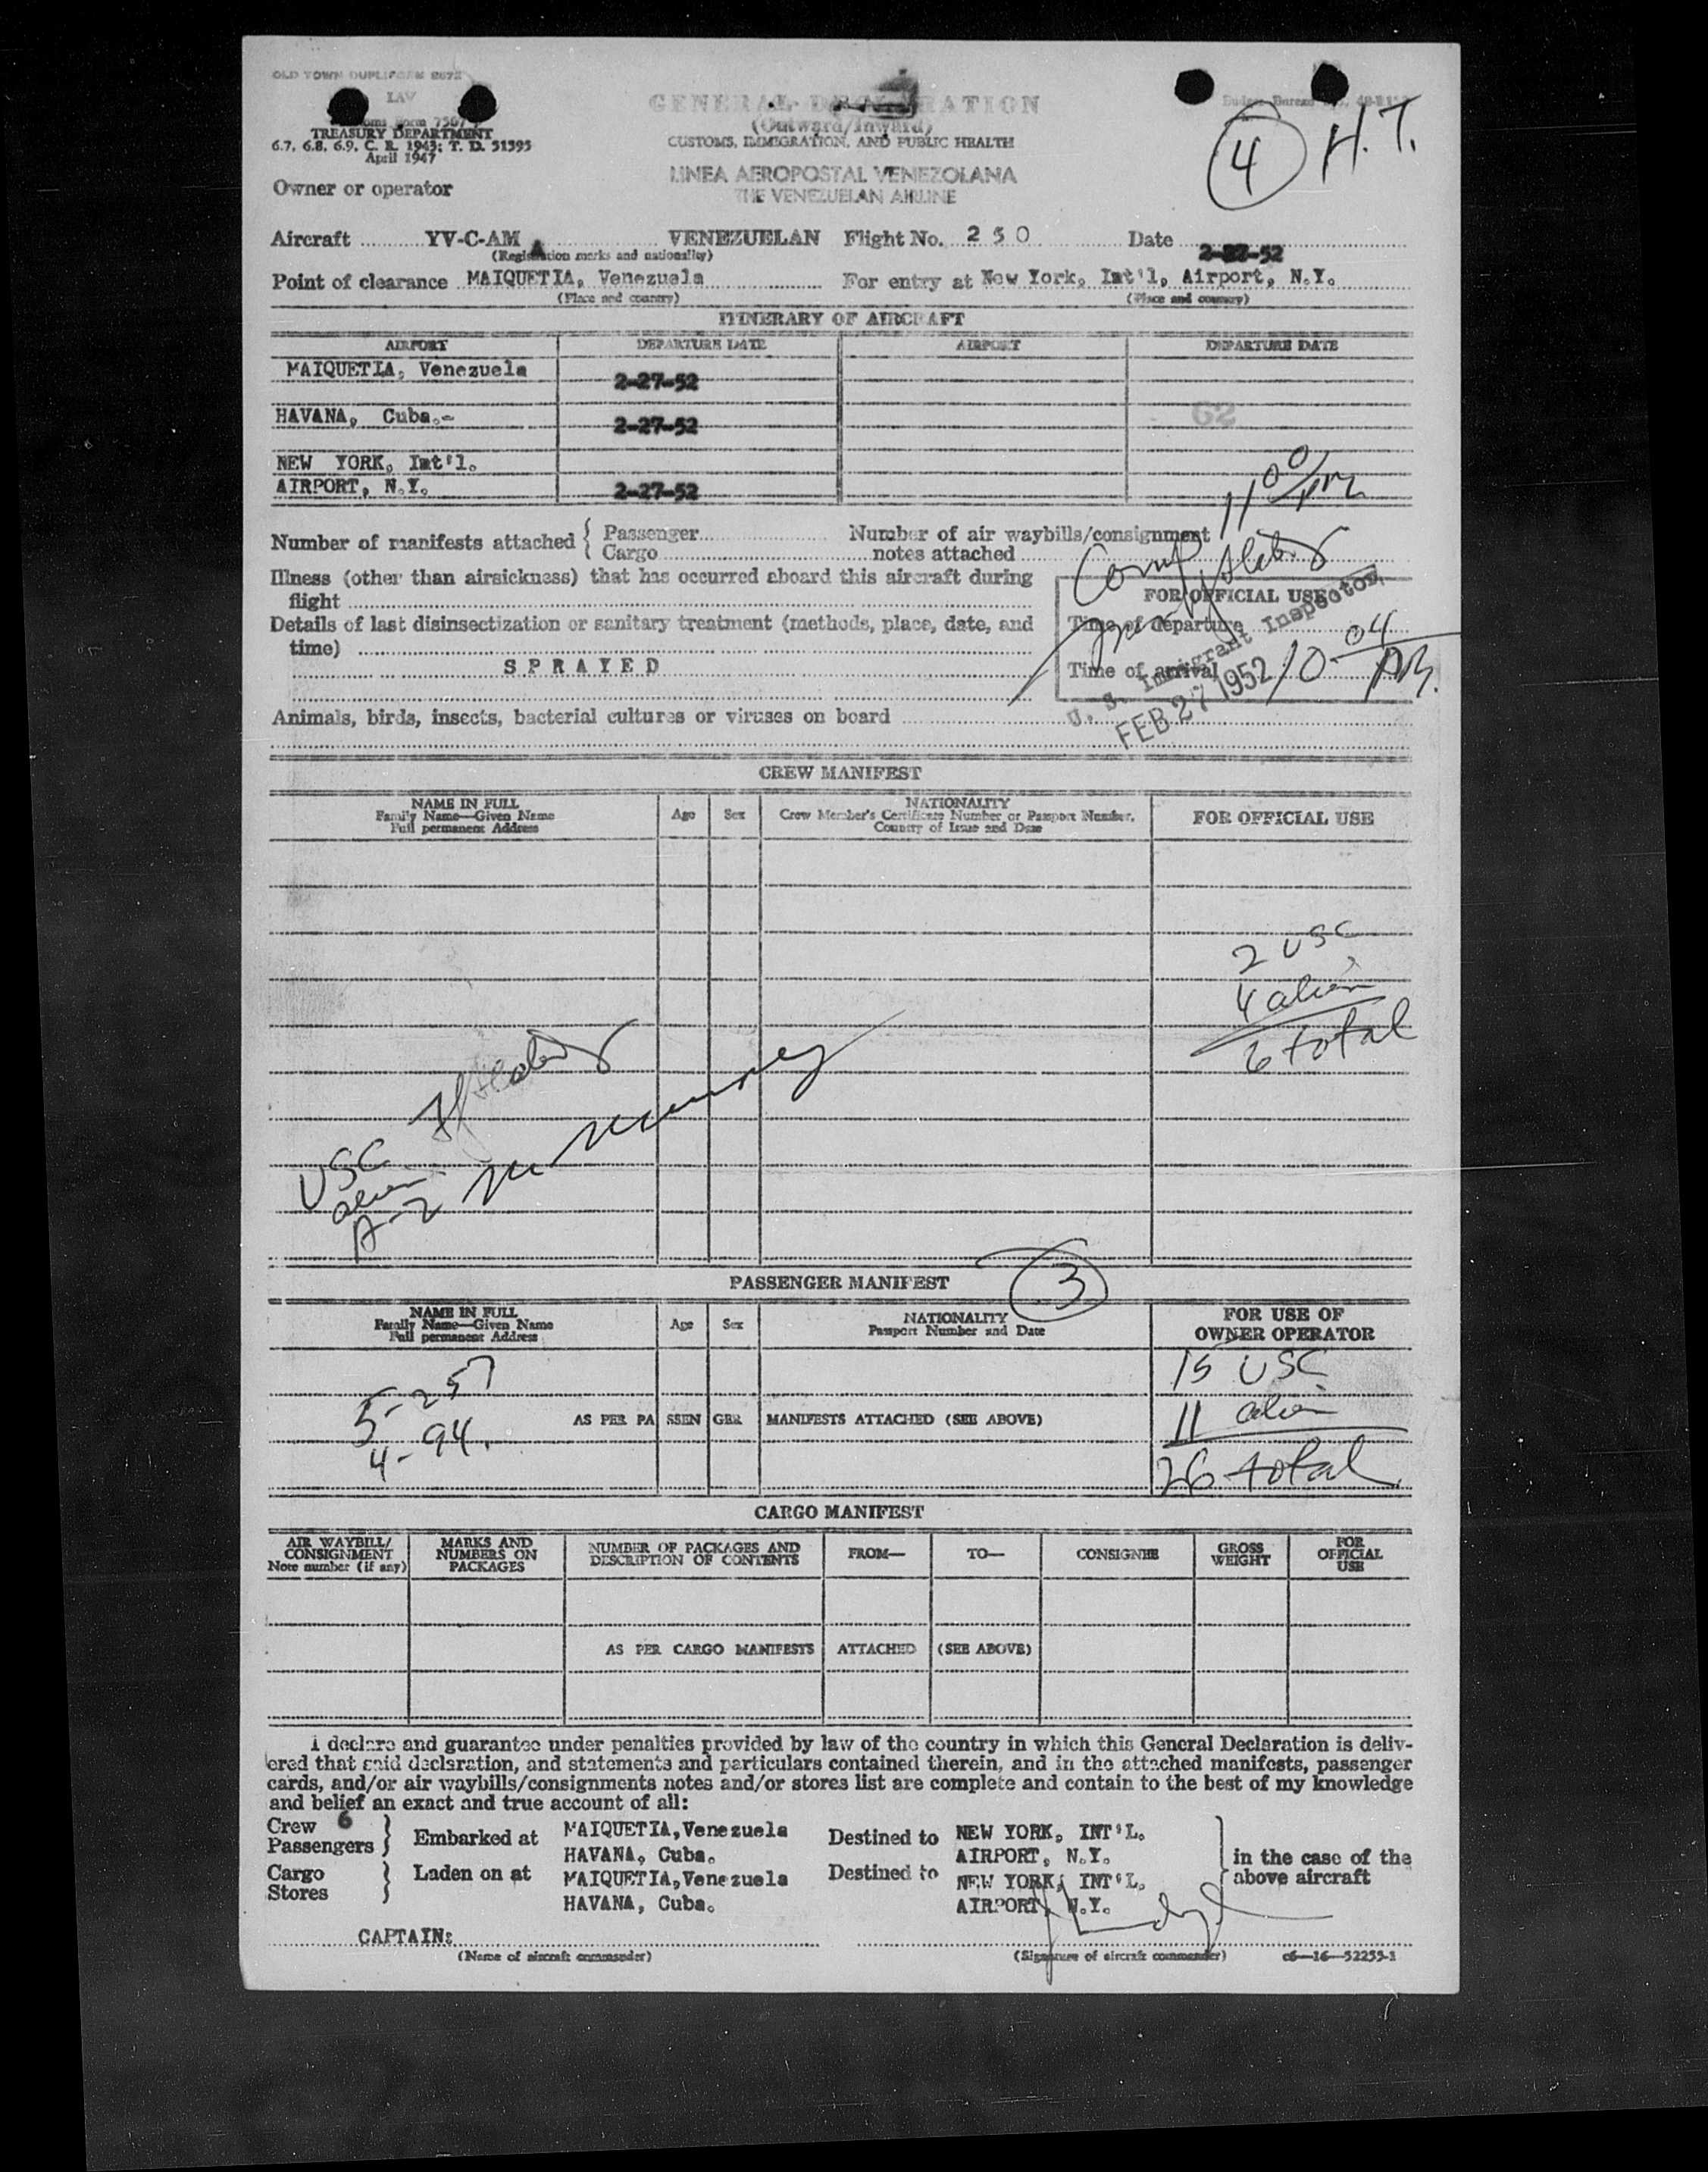 OLD TOWN DUPLIFORM 8672
LAV
Customs Form 7507
TREASURY DEPARTMENT
6.7, 6.8, 6.9, C. R. 1943; T. D. 51395
April 1947
GENERAL DECLARATION
(Outward/Inward)
CUSTOMS, IMMIGRATION, AND PUBLIC HEALTH
Budget Bureau No.
4 H.T.
LINEA AEROPOSTAL VENEZOLANA
THE VENEZUELAN AIRLINE
Owner or operator
Aircraft YV-C-AM A VENEZUELAN Flight No. 250 Date 2-27-52
(Registration marks and nationality)
Point of clearance MAIQUETIA, Venezuela For entry at New York, Int'l, Airport, N.Y.
(Place and country) (Place and country)
ITINERARY OF AIRCRAFT
AIRPORT DEPARTURE DATE AIRPORT DEPARTURE DATE
MAIQUETIA, Venezuela 2-27-52
HAVANA, Cuba.- 2-27-52
62
NEW YORK, Int'l.
AIRPORT, N.Y. 2-27-52
11 00/PM
Number of manifests attached { Passenger Number of air waybills/consignment
Cargo notes attached
Illness (other than airsickness) that has occurred aboard this aircraft during
flight
FOR OFFICIAL USE
Details of last disinsectization or sanitary treatment (methods, place, date, and
time)
Time of departure
SPRAYED
Time of arrival 10-04 PM.
U. S. Immigrant Inspector
FEB 27 1952
Animals, birds, insects, bacterial cultures or viruses on board
CREW MANIFEST
NAME IN FULL
Family Name—Given Name
Full permanent Address
Age Sex
NATIONALITY
Crew Member's Certificate Number or Passport Number,
Country of Issue and Date
FOR OFFICIAL USE
2 USC
4 alien
6 total
USC
alien
A-2
PASSENGER MANIFEST
3
NAME IN FULL
Family Name—Given Name
Full permanent Address
Age Sex
NATIONALITY
Passport Number and Date
FOR USE OF
OWNER OPERATOR
15 USC
5-257
11 alien
AS PER PASSENGER MANIFESTS ATTACHED (SEE ABOVE)
4-94.
26 total
CARGO MANIFEST
AIR WAYBILL/
CONSIGNMENT
Note number (if any)
MARKS AND
NUMBERS ON
PACKAGES
NUMBER OF PACKAGES AND
DESCRIPTION OF CONTENTS
FROM— TO— CONSIGNEE
GROSS
WEIGHT
FOR
OFFICIAL
USE
AS PER CARGO MANIFESTS ATTACHED (SEE ABOVE)
I declare and guarantee under penalties provided by law of the country in which this General Declaration is deliv-
ered that said declaration, and statements and particulars contained therein, and in the attached manifests, passenger
cards, and/or air waybills/consignments notes and/or stores list are complete and contain to the best of my knowledge
and belief an exact and true account of all:
Crew 6
Passengers } Embarked at MAIQUETIA, Venezuela Destined to NEW YORK, INT'L.
HAVANA, Cuba. AIRPORT, N.Y. in the case of the
Cargo
Stores } Laden on at MAIQUETIA, Venezuela Destined to NEW YORK, INT'L. above aircraft
HAVANA, Cuba. AIRPORT, N.Y.
CAPTAIN:
(Name of aircraft commander) (Signature of aircraft commander) c6—16—52255-1